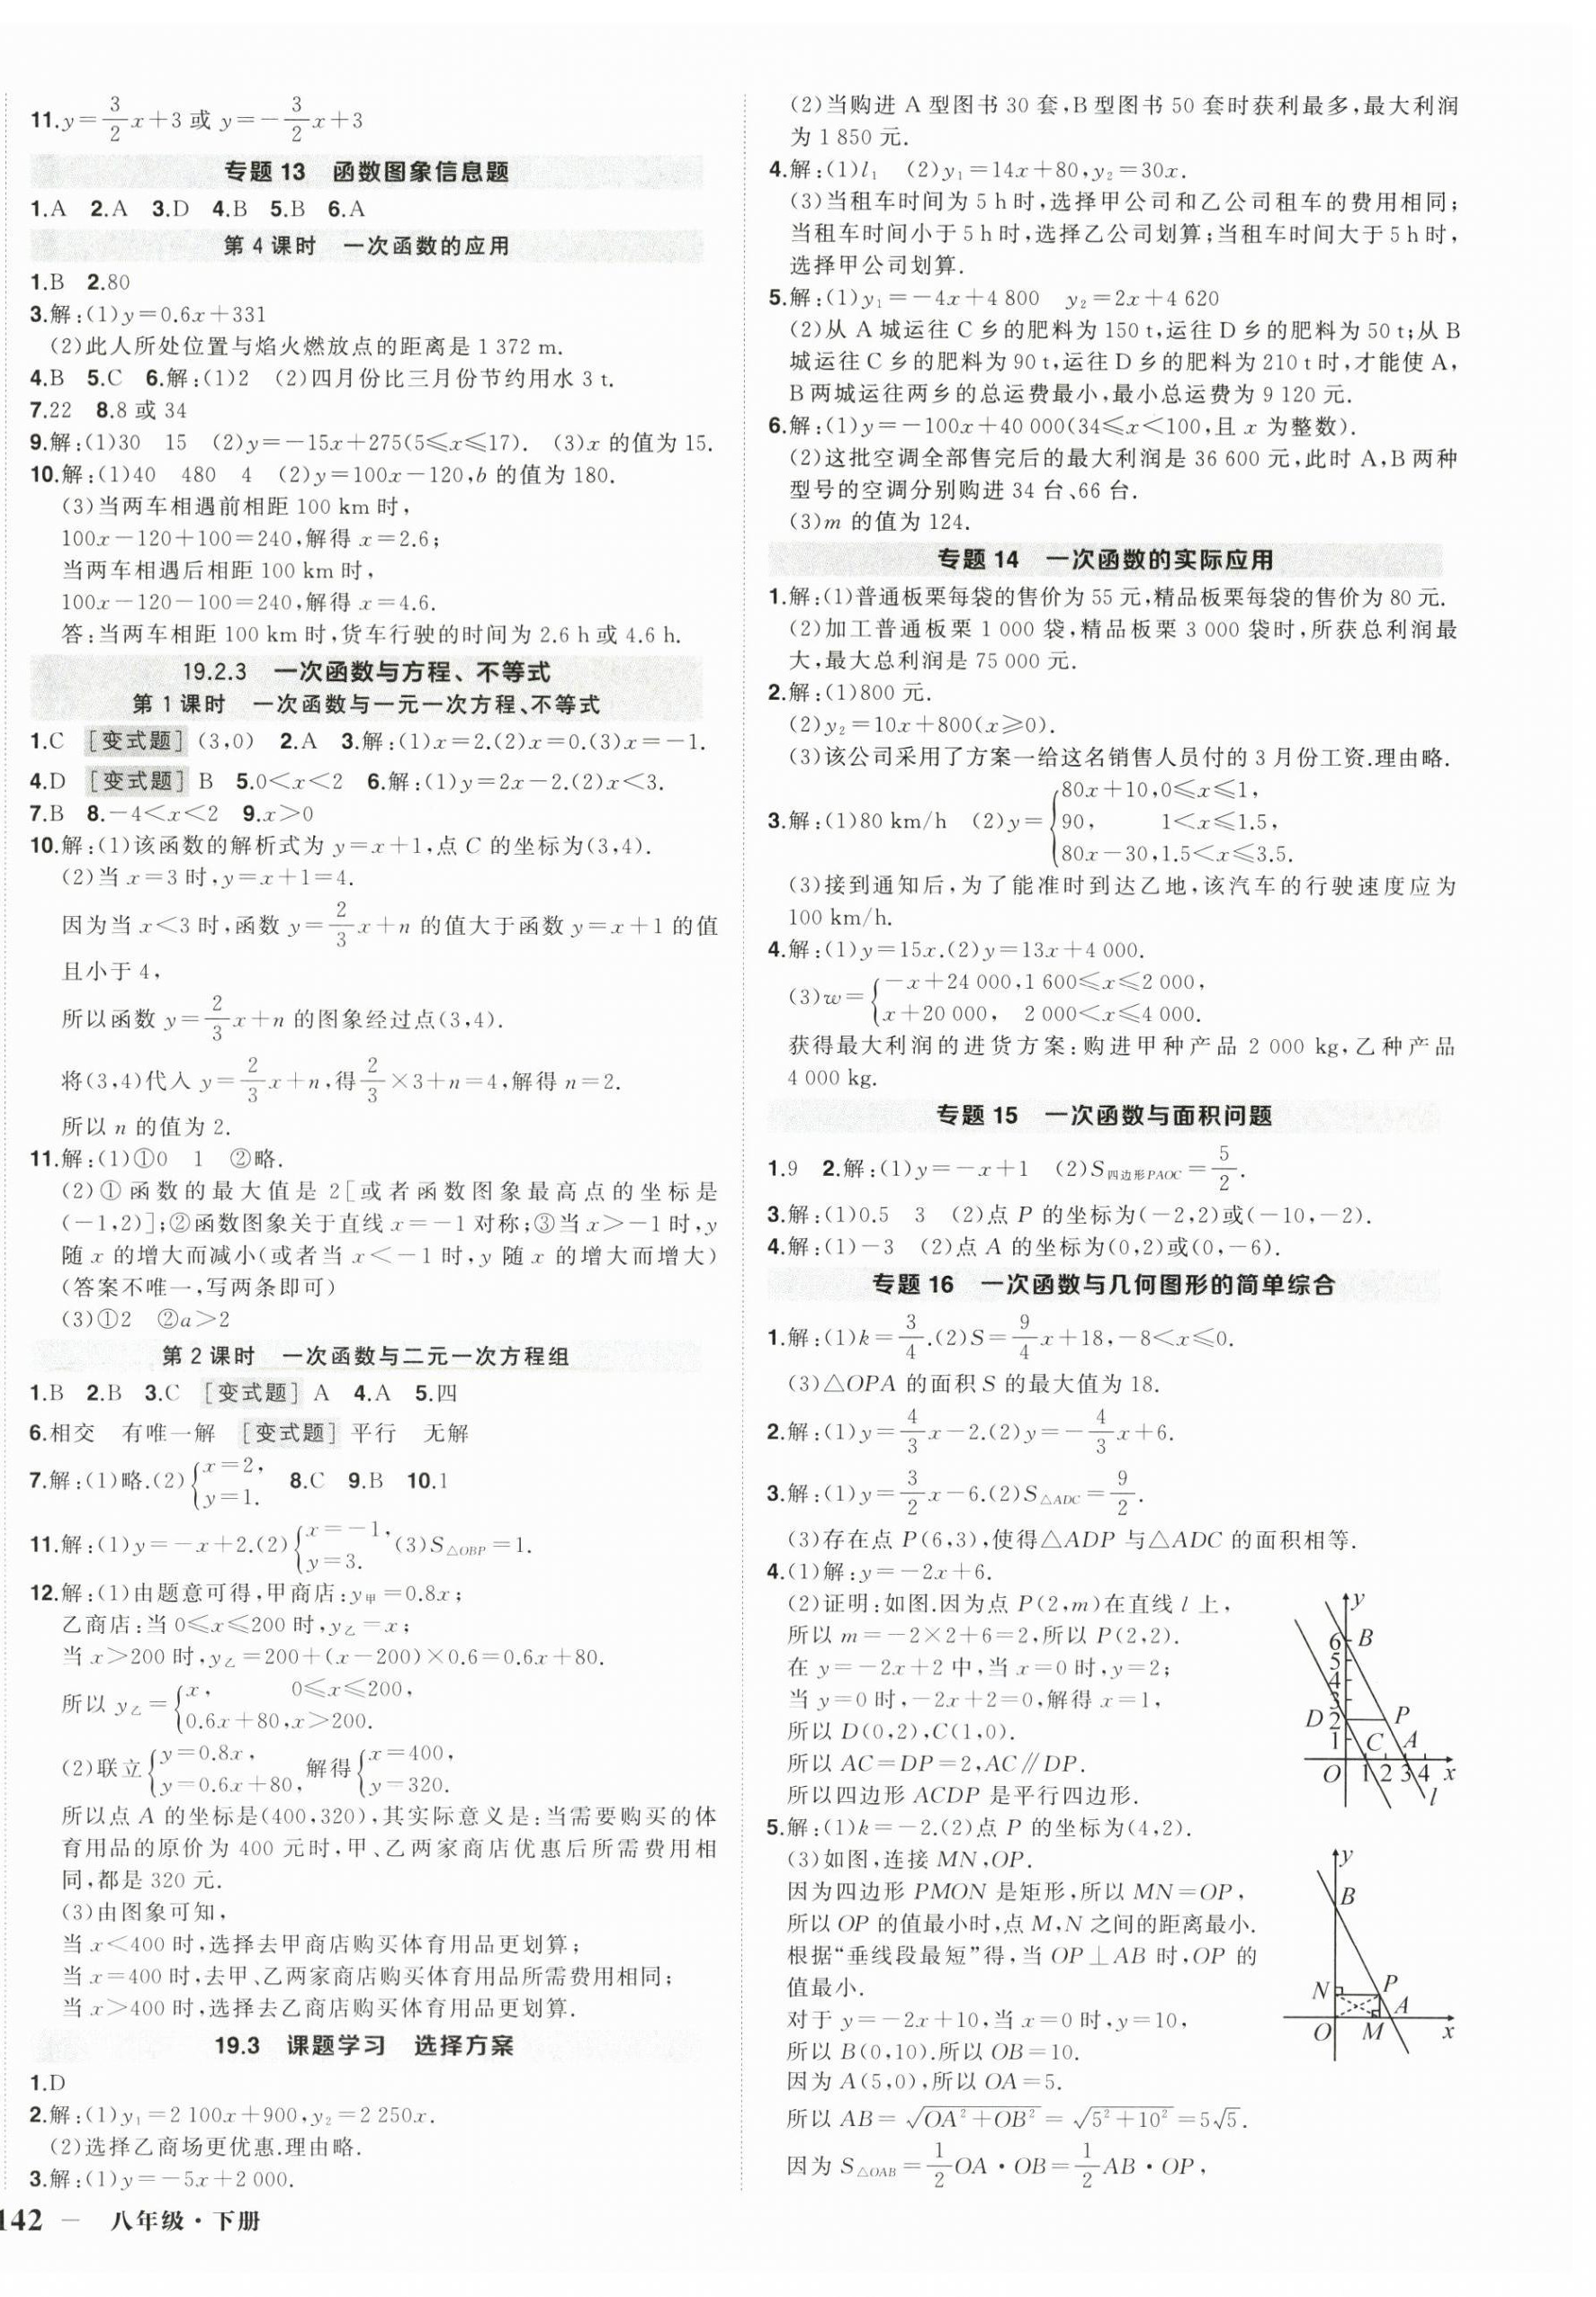 11.y=3/2x+3 或 y=-3/2x+3
专题 13 函数图象信息题
1.A 2.A 3.D 4.B 5.B 6.A
第 4 课时 一次函数的应用
1.B 2.80
3.解:(1)y=0.6x+331
(2)此人所处位置与焰火燃放点的距离是 1 372 m.
4.B 5.C 6.解:(1)2 (2)四月份比三月份节约用水 3 t.
7.22 8.8 或 34
9.解:(1)30 15 (2)y=-15x+275(5≤x≤17). (3)x 的值为 15.
10.解:(1)40 480 4 (2)y=100x-120,b 的值为 180.
(3)当两车相遇前相距 100 km 时,
100x-120+100=240,解得 x=2.6;
当两车相遇后相距 100 km 时,
100x-120-100=240,解得 x=4.6.
答:当两车相距 100 km 时,货车行驶的时间为 2.6 h 或 4.6 h.
19.2.3 一次函数与方程、不等式
第 1 课时 一次函数与一元一次方程、不等式
1.C [变式题] (3,0) 2.A 3.解:(1)x=2.(2)x=0.(3)x=-1.
4.D [变式题] B 5.0<x<2 6.解:(1)y=2x-2.(2)x<3.
7.B 8.-4<x<2 9.x>0
10.解:(1)该函数的解析式为 y=x+1,点 C 的坐标为(3,4).
(2)当 x=3 时,y=x+1=4.
因为当 x<3 时,函数 y=2/3x+n 的值大于函数 y=x+1 的值
且小于 4,
所以函数 y=2/3x+n 的图象经过点(3,4).
将(3,4)代入 y=2/3x+n,得2/3×3+n=4,解得 n=2.
所以 n 的值为 2.
11.解:(1)①0 1 ②略.
(2)①函数的最大值是 2[或者函数图象最高点的坐标是
(-1,2)];②函数图象关于直线 x=-1 对称;③当 x>-1 时,y
随 x 的增大而减小(或者当 x<-1 时,y 随 x 的增大而增大)
(答案不唯一,写两条即可)
(3)①2 ②a>2
第 2 课时 一次函数与二元一次方程组
1.B 2.B 3.C [变式题] A 4.A 5.四
6.相交 有唯一解 [变式题] 平行 无解
7.解:(1)略.(2){x=2, y=1. 8.C 9.B 10.1
11.解:(1)y=-x+2.(2){x=-1, y=3. (3)S△OBP=1.
12.解:(1)由题意可得,甲商店:y甲=0.8x;
乙商店:当 0≤x≤200 时,y乙=x;
当 x>200 时,y乙=200+(x-200)×0.6=0.6x+80.
所以 y乙={x, 0≤x≤200, 0.6x+80,x>200.
(2)联立{y=0.8x, y=0.6x+80, 解得{x=400, y=320.
所以点 A 的坐标是(400,320),其实际意义是:当需要购买的体
育用品的原价为 400 元时,甲、乙两家商店优惠后所需费用相
同,都是 320 元.
(3)由图象可知,
当 x<400 时,选择去甲商店购买体育用品更划算;
当 x=400 时,去甲、乙两家商店购买体育用品所需费用相同;
当 x>400 时,选择去乙商店购买体育用品更划算.
19.3 课题学习 选择方案
1.D
2.解:(1)y₁=2 100x+900,y₂=2 250x.
(2)选择乙商场更优惠.理由略.
3.解:(1)y=-5x+2 000.
142 — 八年级·下册
(2)当购进 A 型图书 30 套,B 型图书 50 套时获利最多,最大利润
为 1 850 元.
4.解:(1)l₁ (2)y₁=14x+80,y₂=30x.
(3)当租车时间为 5 h 时,选择甲公司和乙公司租车的费用相同;
当租车时间小于 5 h 时,选择乙公司划算;当租车时间大于 5 h 时,
选择甲公司划算.
5.解:(1)y₁=-4x+4 800 y₂=2x+4 620
(2)从 A 城运往 C 乡的肥料为 150 t,运往 D 乡的肥料为 50 t;从 B
城运往 C 乡的肥料为 90 t,运往 D 乡的肥料为 210 t 时,才能使 A,
B 两城运往两乡的总运费最小,最小总运费为 9 120 元.
6.解:(1)y=-100x+40 000(34≤x<100,且 x 为整数).
(2)这批空调全部售完后的最大利润是 36 600 元,此时 A,B 两种
型号的空调分别购进 34 台、66 台.
(3)m 的值为 124.
专题 14 一次函数的实际应用
1.解:(1)普通板栗每袋的售价为 55 元,精品板栗每袋的售价为 80 元.
(2)加工普通板栗 1 000 袋,精品板栗 3 000 袋时,所获总利润最
大,最大总利润是 75 000 元.
2.解:(1)800 元.
(2)y₂=10x+800(x≥0).
(3)该公司采用了方案一给这名销售人员付的 3 月份工资.理由略.
3.解:(1)80 km/h (2)y={80x+10,0≤x≤1, 90, 1<x≤1.5, 80x-30,1.5<x≤3.5.
(3)接到通知后,为了能准时到达乙地,该汽车的行驶速度应为
100 km/h.
4.解:(1)y=15x.(2)y=13x+4 000.
(3)w={-x+24 000,1 600≤x≤2 000, x+20 000, 2 000<x≤4 000.
获得最大利润的进货方案:购进甲种产品 2 000 kg,乙种产品
4 000 kg.
专题 15 一次函数与面积问题
1.9 2.解:(1)y=-x+1 (2)S四边形PAOC=5/2.
3.解:(1)0.5 3 (2)点 P 的坐标为(-2,2)或(-10,-2).
4.解:(1)-3 (2)点 A 的坐标为(0,2)或(0,-6).
专题 16 一次函数与几何图形的简单综合
1.解:(1)k=3/4.(2)S=9/4x+18,-8<x≤0.
(3)△OPA 的面积 S 的最大值为 18.
2.解:(1)y=4/3x-2.(2)y=-4/3x+6.
3.解:(1)y=3/2x-6.(2)S△ADC=9/2.
(3)存在点 P(6,3),使得△ADP 与△ADC 的面积相等.
4.(1)解:y=-2x+6.
(2)证明:如图.因为点 P(2,m)在直线 l 上,
所以 m=-2×2+6=2,所以 P(2,2).
在 y=-2x+2 中,当 x=0 时,y=2;
当 y=0 时,-2x+2=0,解得 x=1,
所以 D(0,2),C(1,0).
所以 AC=DP=2,AC∥DP.
所以四边形 ACDP 是平行四边形.
y
6 B
5
4
3
D 2 P
1 C A
O 1 2 3 4 x
l
5.解:(1)k=-2.(2)点 P 的坐标为(4,2).
(3)如图,连接 MN,OP.
因为四边形 PMON 是矩形,所以 MN=OP,
所以 OP 的值最小时,点 M,N 之间的距离最小.
根据“垂线段最短”得,当 OP⊥AB 时,OP 的
值最小.
对于 y=-2x+10,当 x=0 时,y=10,
所以 B(0,10).所以 OB=10.
因为 A(5,0),所以 OA=5.
所以 AB=√(OA²+OB²)=√(5²+10²)=5√5.
因为 S△OAB=1/2OA·OB=1/2AB·OP,
y
B
N P
A
O M x